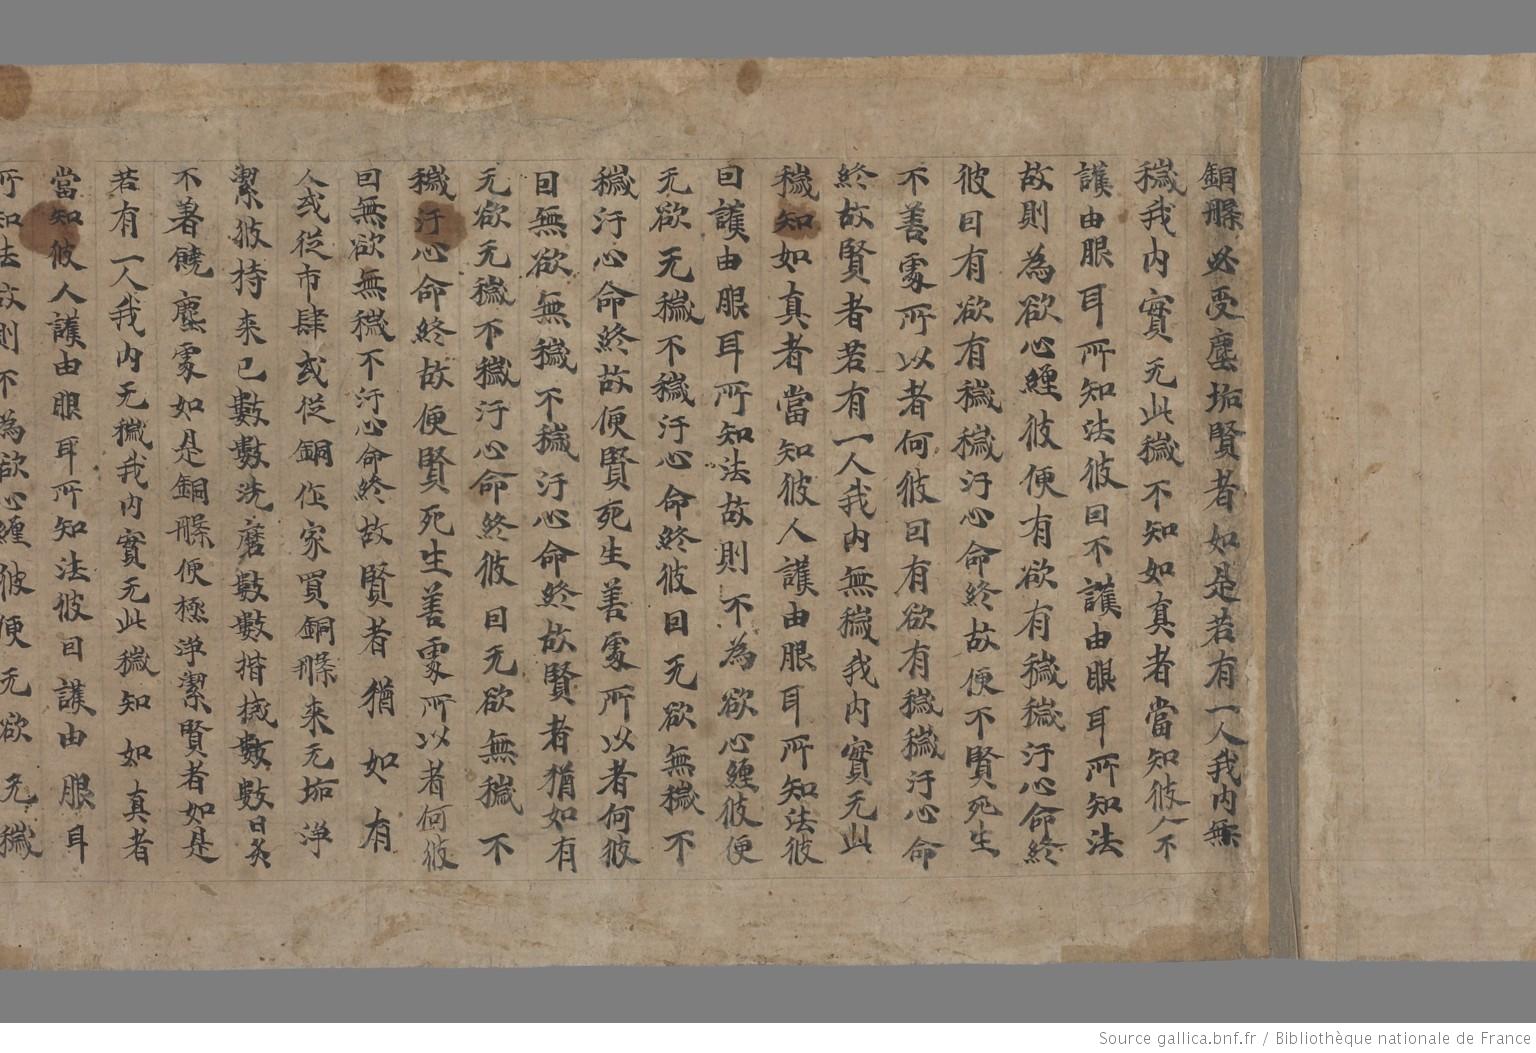 銅槃必受塵垢賢者如是若有一人我内無
穢我内實无此穢不知如真者當知彼人不
護由眼耳所知法彼因不護由眼耳所知法
故則為欲心纏彼便有欲有穢穢汙心命終
彼因有欲有穢穢汙心命終故便不賢死生
不善處所以者何彼因有欲有穢穢汙心命
終故賢者若有一人我内無穢我内實无此
穢知如真者當知彼人護由眼耳所知法彼
因護由眼耳所知法故則不為欲心纏彼便
无欲无穢不穢汙心命終彼因无欲無穢不
穢汙心命終故便賢死生善處所以者何彼
因無欲無穢不穢汙心命終故賢者猶如有
无欲无穢不穢汙心命終彼因无欲無穢不
穢汙心命終故便賢死生善處所以者何彼
因無欲無穢不汙心命終故賢者猶如有
人或從市肆或從銅作家買銅槃来无垢淨
潔彼持来已數數洗磨數數揩拭數數日炙
不著饒塵處如是銅槃便極淨潔賢者如是
若有一人我内无穢我内實无此穢知如真者
當知彼人護由眼耳所知法彼因護由眼耳
所知法故則不為欲心纏彼便无欲无穢
Source gallica.bnf.fr / Bibliothèque nationale de France